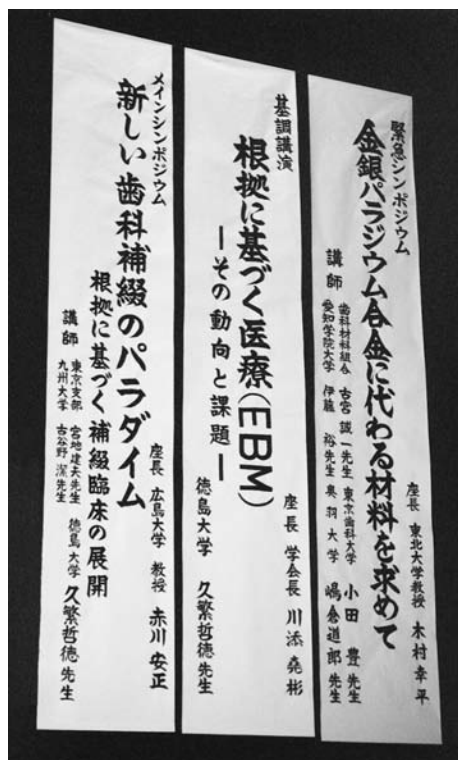 緊急シンポジウム
金銀パラジウム合金に代わる材料を求めて
座長 東北大学教授 木村幸平
講師 歯科材料組合 古宮誠一先生 東京歯科大学 小田豊先生
愛知学院大学 伊藤裕先生 奥羽大学 嶋倉道郎先生
基調講演
根拠に基づく医療(EBM)
―その動向と課題―
座長 学会長 川添堯彬
徳島大学 久繁哲徳先生
メインシンポジウム
新しい歯科補綴のパラダイム
根拠に基づく補綴臨床の展開
座長 広島大学 教授 赤川安正
講師 東京支部 宮地建夫先生 徳島大学 久繁哲徳先生
九州大学 古谷野潔先生